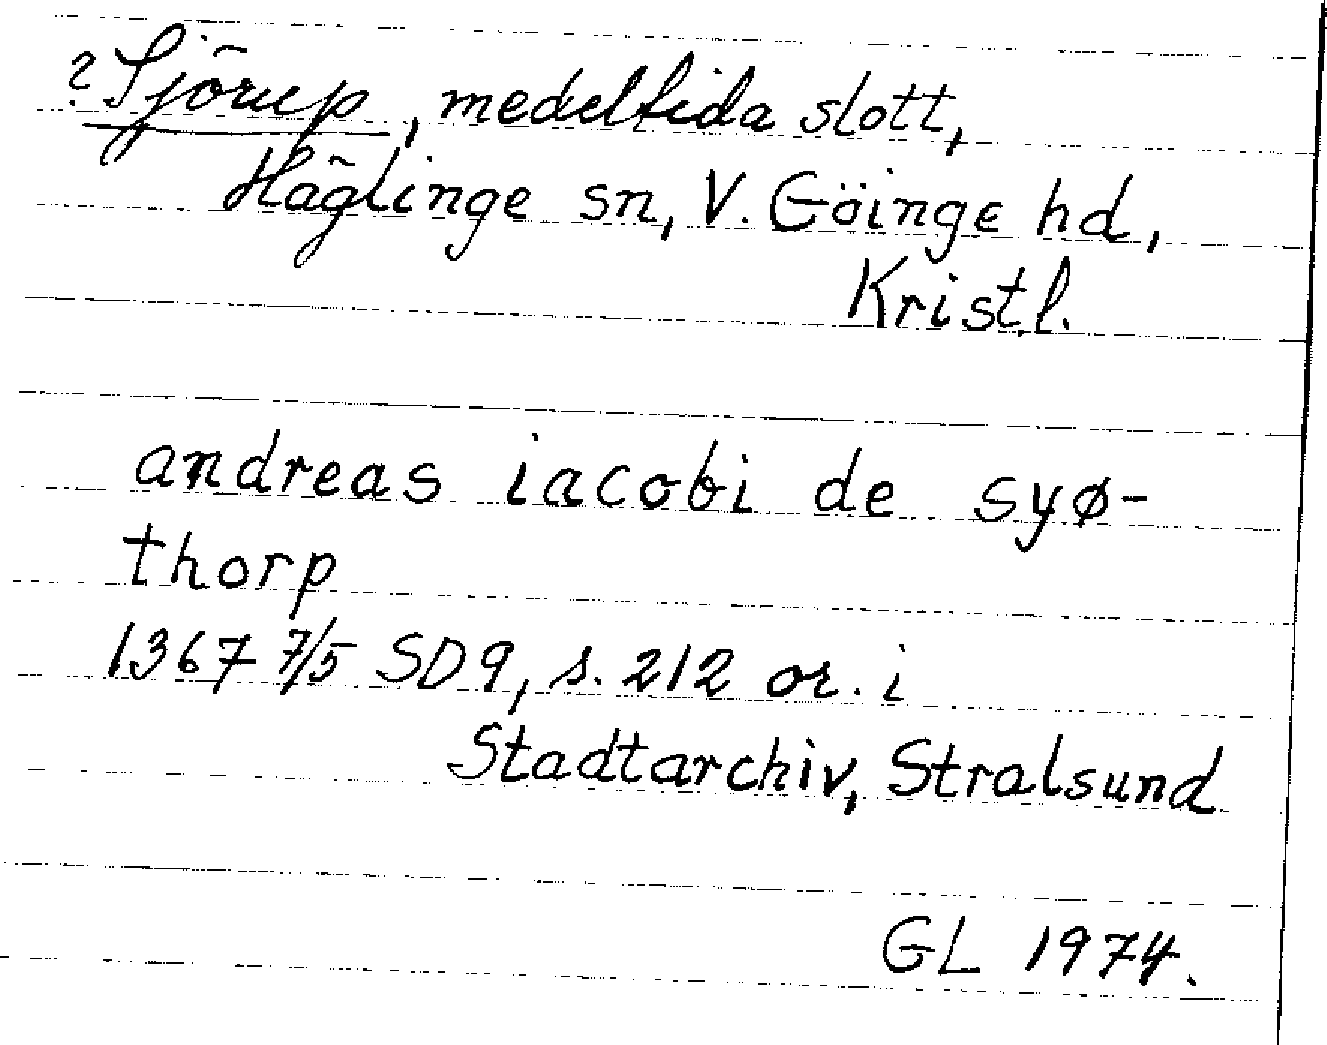 ? Sjörup, medeltida slott,
Häglinge sn, V. Göinge hd,
Krist.l.
andreas iacobi de syø-
thorp
1367 7/5 SD9, s. 212 or. i
Stadtarchiv, Stralsund
GL 1974.